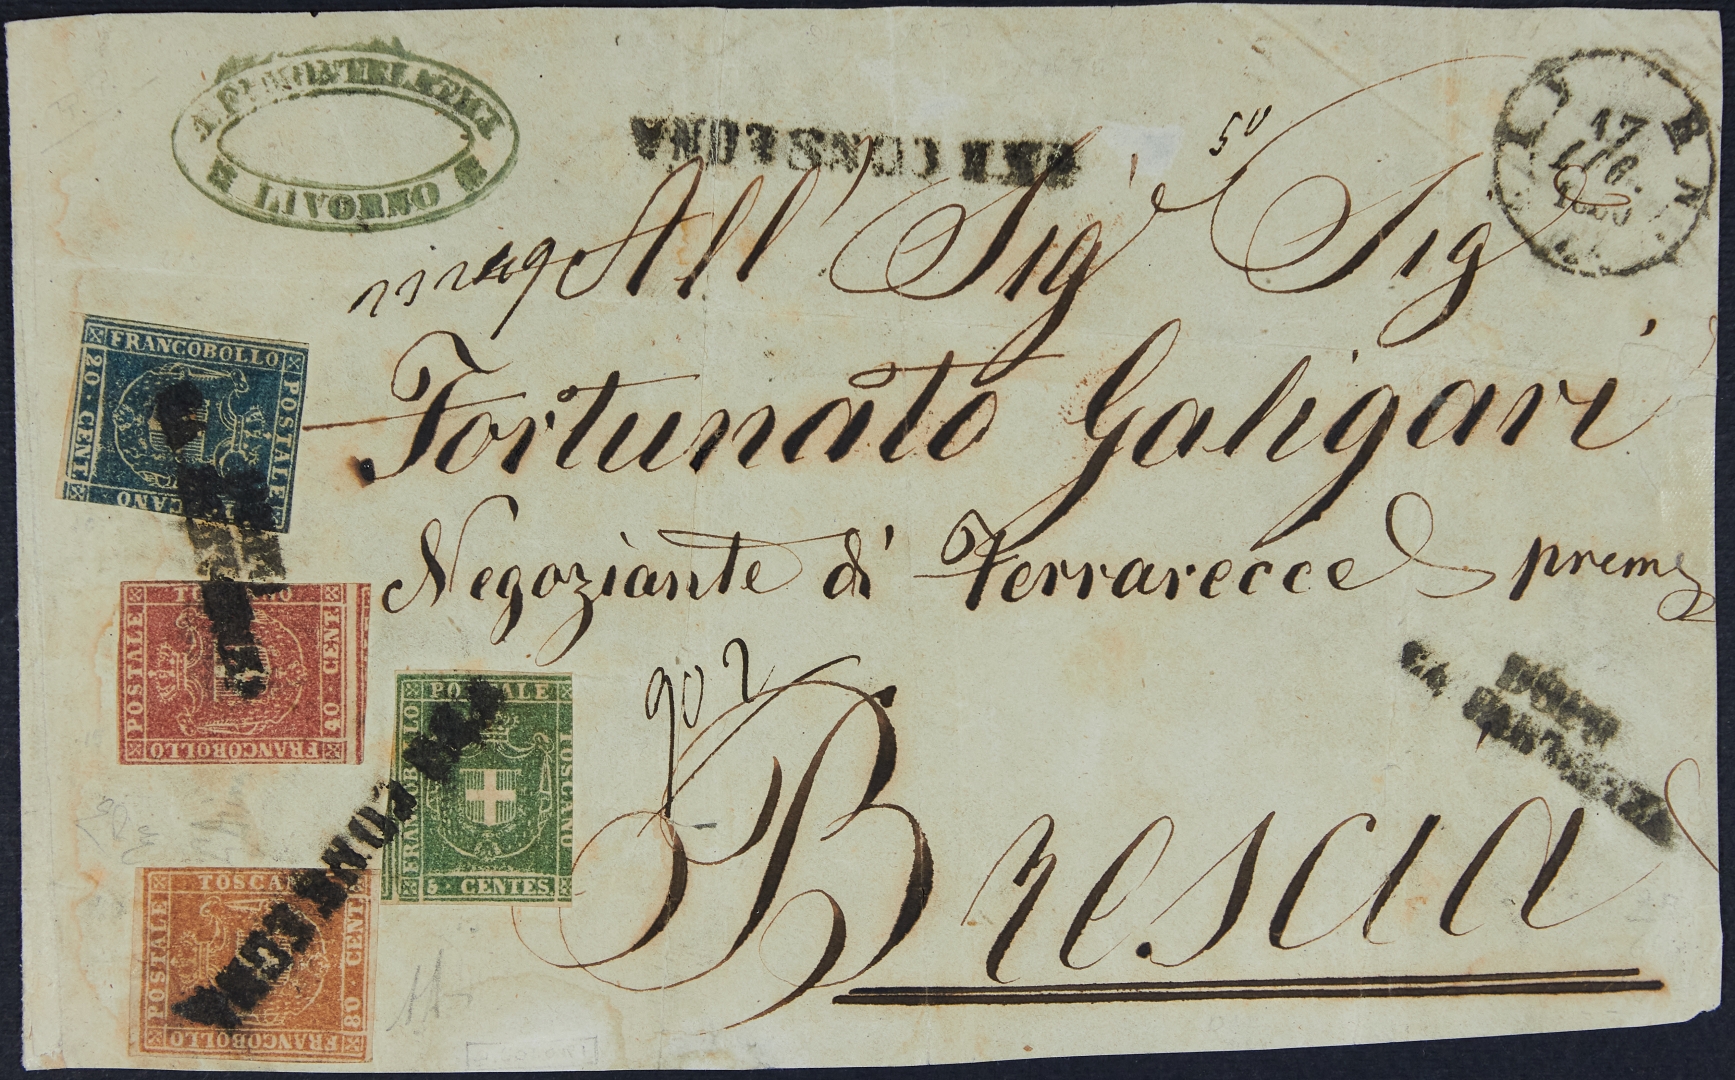 LIVORNO
PER CONSEGNA
50
17
LUG.
1860
All' Sig Sig
Fortunato Galigari
Negoziante di Ferrarecce
Brescia
902
DOPO
LA PARTENZA
FRANCOBOLLO
POSTALE
TOSCANO
20 CENT
TOSCANO
40 CENT
FRANCOBOLLO
POSTALE
POSTALE
TOSCANO
5 CENTES.
FRANCOBOLLO
TOSCANO
80 CENT
FRANCOBOLLO
POSTALE